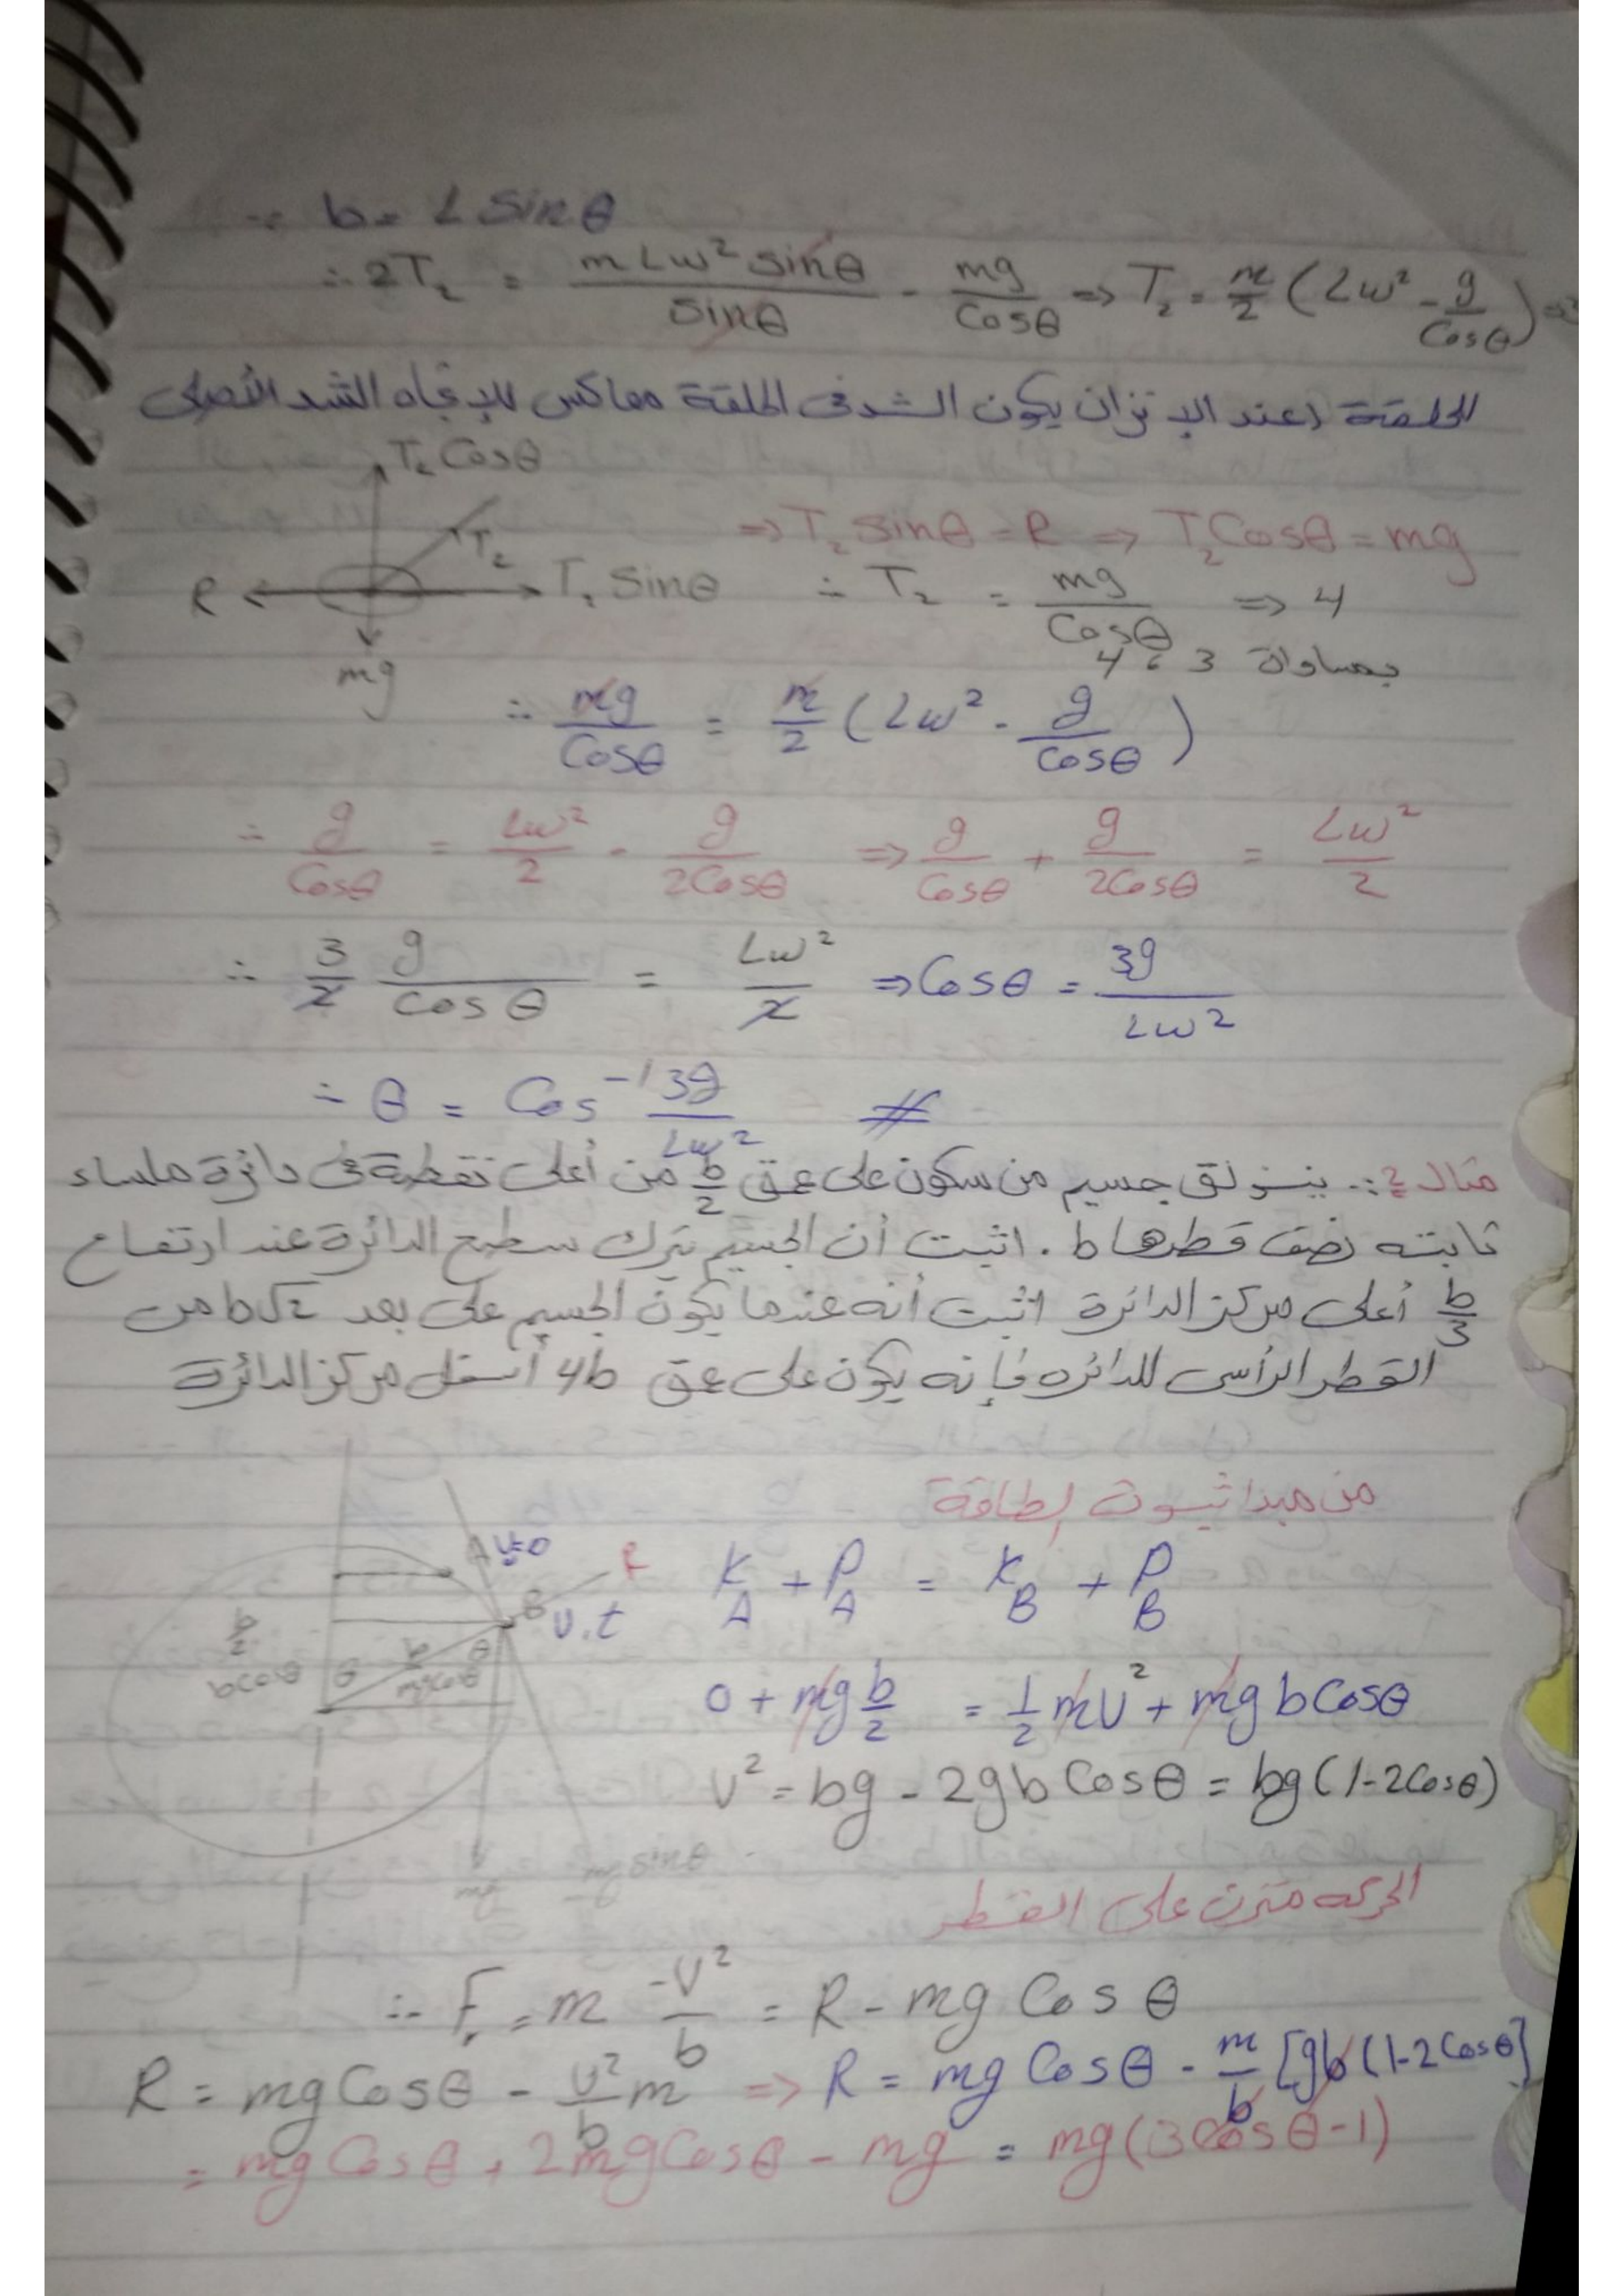 ∵ b = L Sinθ
∴ 2T₂ = mLω² sinθ / Sinθ - mg / Cosθ ⇒ T₂ = m/2 (Lω² - g/Cosθ) ⇒
الحلقة (عند الإتزان يكون الشد فى الحلقة معاكس للإتجاه الشد الأصلى
T₂ Cosθ
⇒ T₂ sinθ = R ⇒ T₂ Cosθ = mg
R T₂ T₁ Sinθ ∴ T₂ = mg / Cosθ ⇒ 4
mg بمساواة 3 ، 4
∴ mg / Cosθ = m/2 (Lω² - g / Cosθ)
∴ g / Cosθ = Lω² / 2 - g / 2Cosθ ⇒ g / Cosθ + g / 2Cosθ = Lω² / 2
∴ 3/2 g / cosθ = Lω² / 2 ⇒ Cosθ = 3g / Lω²
∴ θ = Cos⁻¹ 3g / Lω² #
مثال 2:. ينزلق جسيم من سكون على عمق b/2 من أعلى نقطة فى دائرة ملساء
ثابته نصف قطرها b . اثبت أن الجسيم يترك سطح الدائرة عند ارتفاع
b/3 أعلى مركز الدائرة اثبت أنه عندما يكون الجسيم على بعد b√2 من
القطر الرأسى للدائره فإنه يكون على عمق 4b أسفل مركز الدائرة
من مبدا ثبوت الطاقة
A v=0
R
K_A + P_A = K_B + P_B
B v.t
b/2 b θ
bcosθ θ mgcosθ
0 + mg b/2 = 1/2 mv² + mg b Cosθ
v² = bg - 2gb Cosθ = bg (1-2Cosθ)
mg mg sinθ
الحركه متزن على القطر
∴ F = m -v² / b = R - mg Cosθ
R = mg Cosθ - v²/b m ⇒ R = mg Cosθ - m/b [gb (1-2Cosθ]
= mg Cosθ + 2mgCosθ - mg = mg (3Cosθ-1)